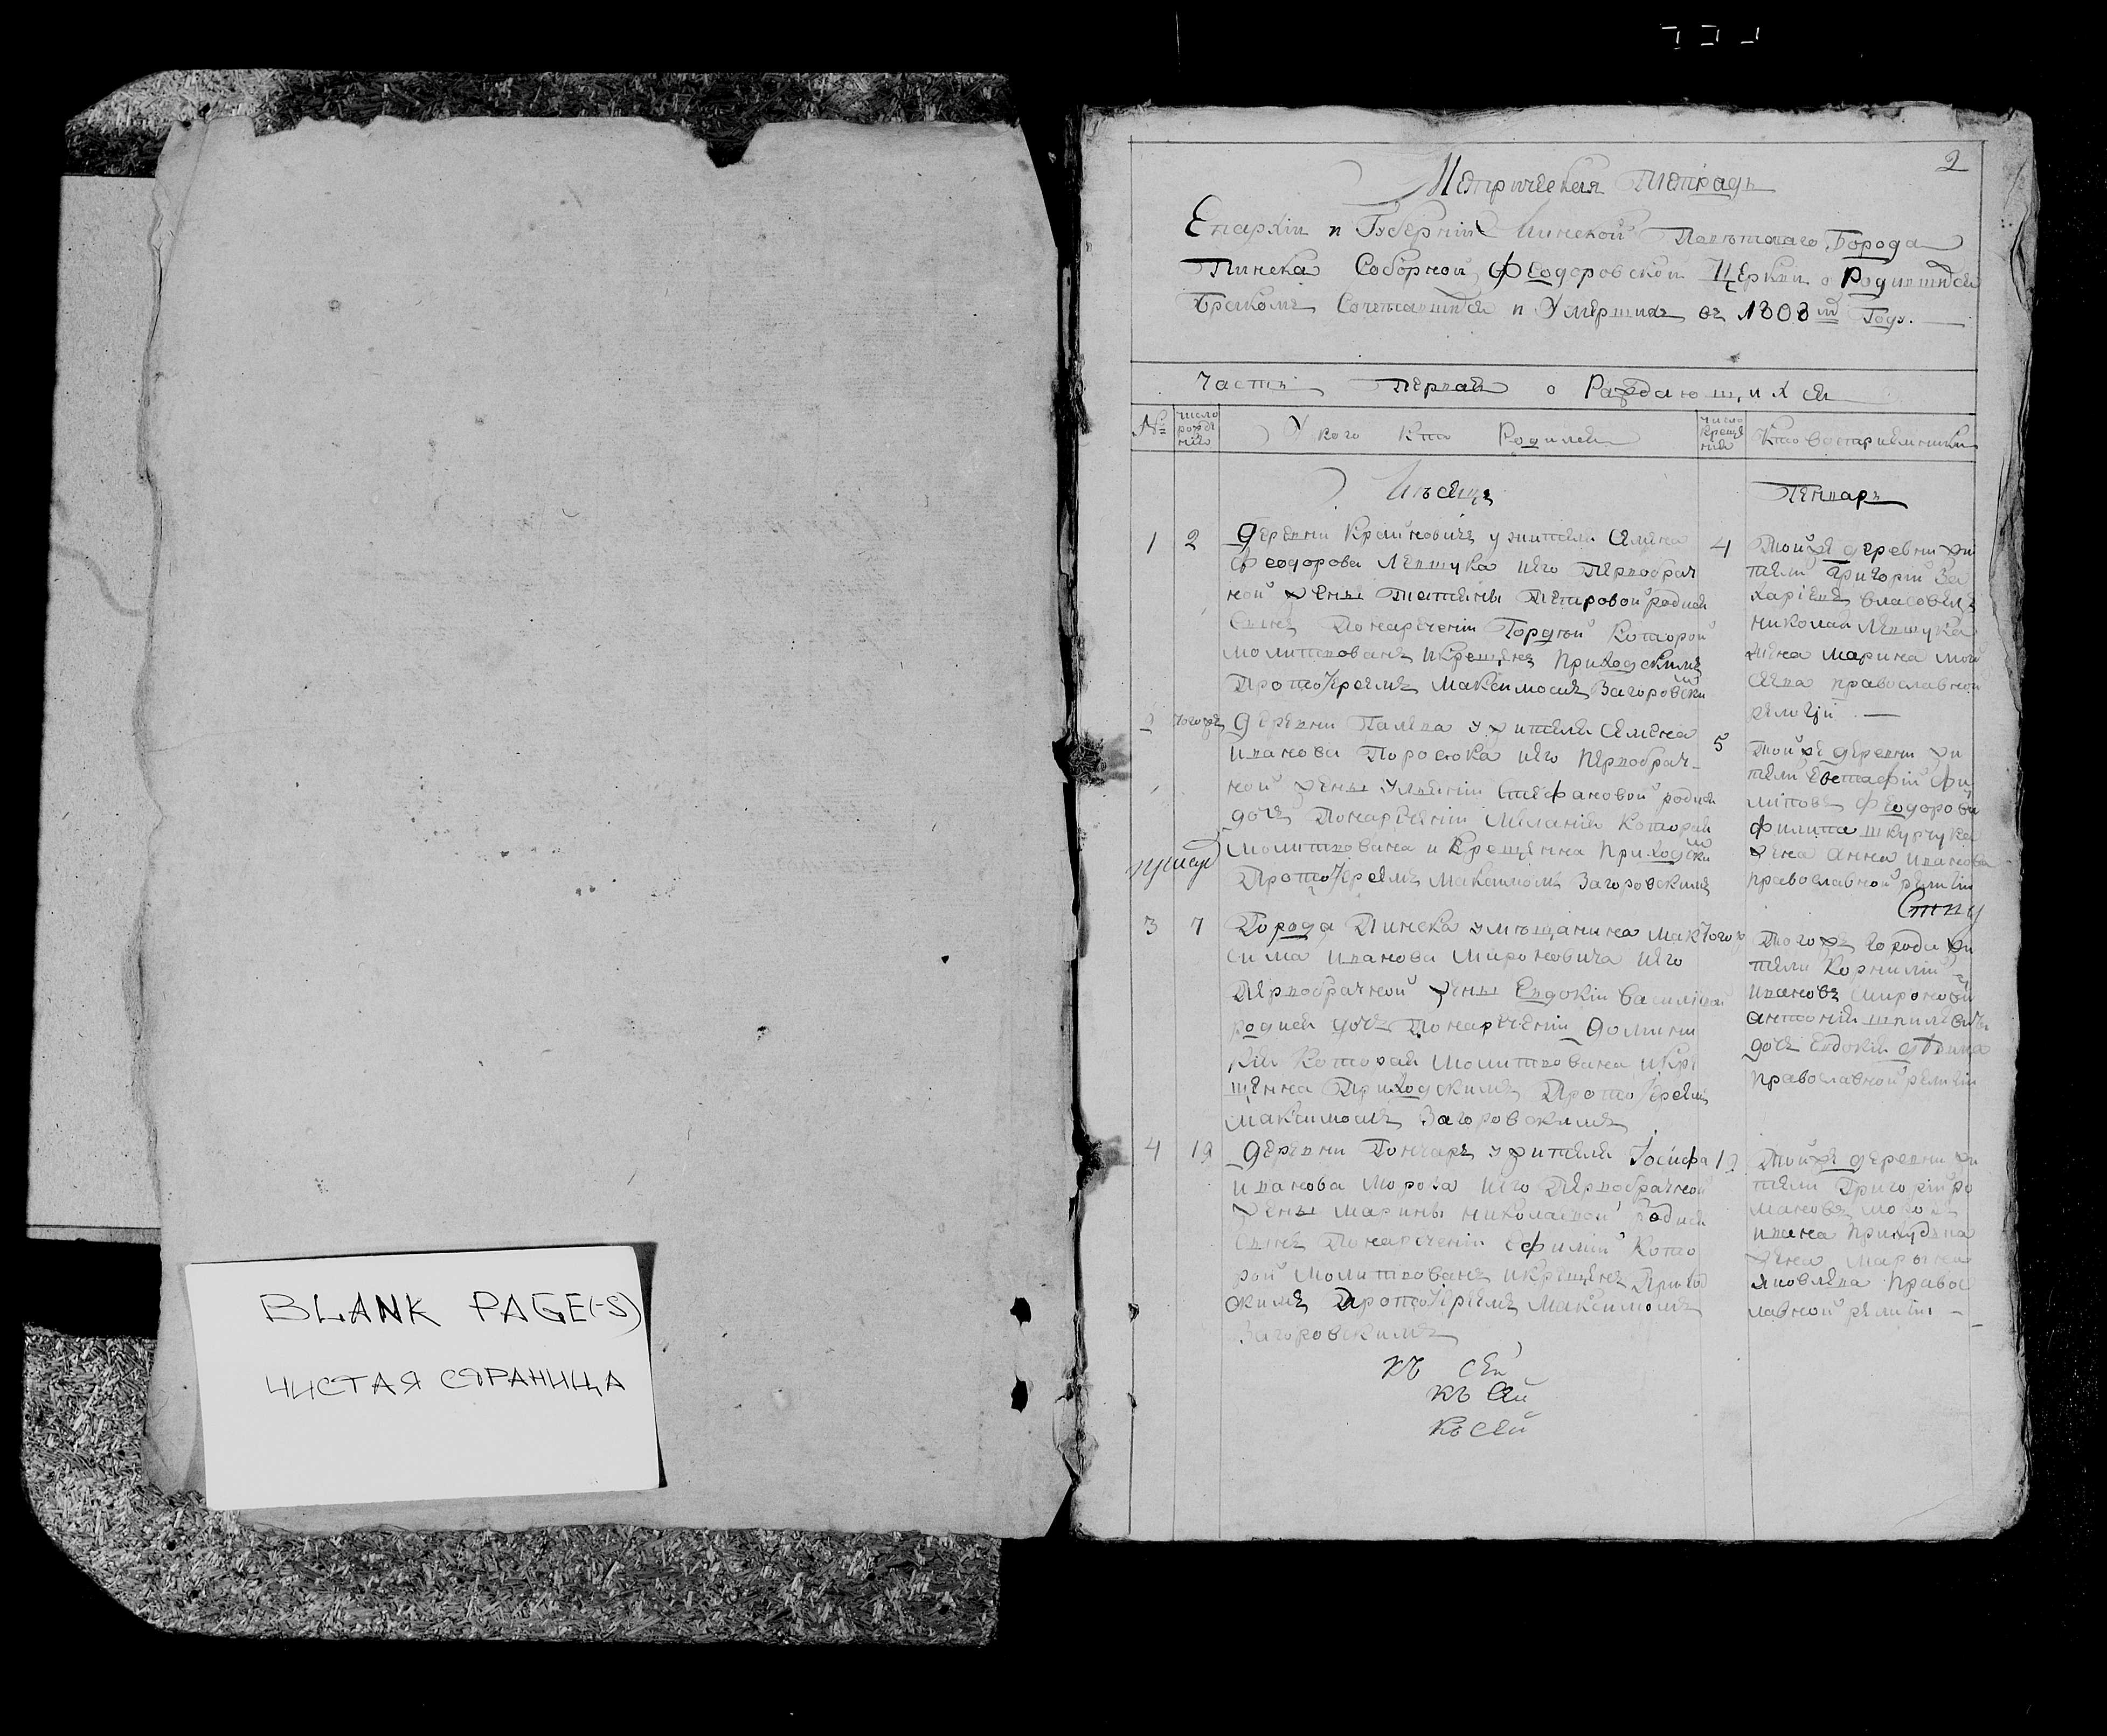 BLANK PAGE(-S)
ЧИСТАЯ СТРАНИЦА
2
Метрическая Тетрадь
Епархіи и Губерніи Минской Поветоваго Города
Пинска Соборной Феодоровской Церкви о Родившихся
Бракомъ Сочетавшихся и Умершихъ въ 1808м Году.
Часть Первая о Раждающихся
№ число рожденія У кого Кто Родился число Крещенія Кто Воспріемники
Мѣсяцъ Генварь
1 2 Деревни Крайновичъ у жителя Семена
Феодорова Левчука Его Первобрач
ной жены Татьяны Петровой родися
Сынъ Понареченіи Гордѣй Которой
молитвованъ и крещенъ приходскимъ
ПротоІереемъ Максимомъ Загоровски
4 Тойже деревни жи
тели Григорій За
харіевъ Власовецъ
Николая Левчука
жена Марина Мой
сеева православной
религіи
2 тогожъ Деревни Галева у жителя Семена
Иванова Поросюка Его Первобрач
ной жены Ульяніи Стефановой родися
дочь Понареченіи Меланія Которая
молитвована и Крещенна приходски
ПротоІереемъ Максимомъ Загоровскимъ
5 Тойже деревни жи
тели Евстафій Фи
липовъ
Филипа Шкурчука
жена Анна Иванова
православной религіи
3 7 Города Пинска у мѣщанина Мак
сима Иванова Мироновича Его
Первобрачной жены Евдокіи Василіевой
родися дочь Понареченіи Домини
кія Которая Молитвована и Кре
щенна Приходскимъ ПротоІереемъ
Максимомъ Загоровскимъ
Тогожъ города жи
тели Корнилій
Ивановъ Миронови
дочь Евдокія
православной религіи
4 19 Деревни Гончаръ у жителя Іосифа
Иванова Мороза Его Первобрачной
жены Марины Николаевой Родися
Сынъ Понареченіи Ефимій Кото
рой Молитвованъ и крещенъ Приход
скимъ ПротоІереемъ Максимомъ
Загоровскимъ
19 Тойже деревни жи
тели Григорій Ро
мановъ Морозъ
Ивана
жена Марына
Яковлева Правос
лавной религіи
къ сей
къ сей
къ сей